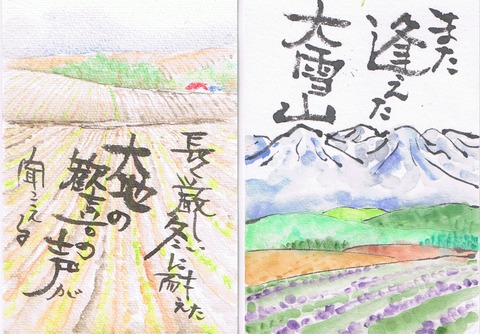 長く厳しい冬に耐えた
大地の
歓喜の声が
聞こえる
また
逢えた
大雪山